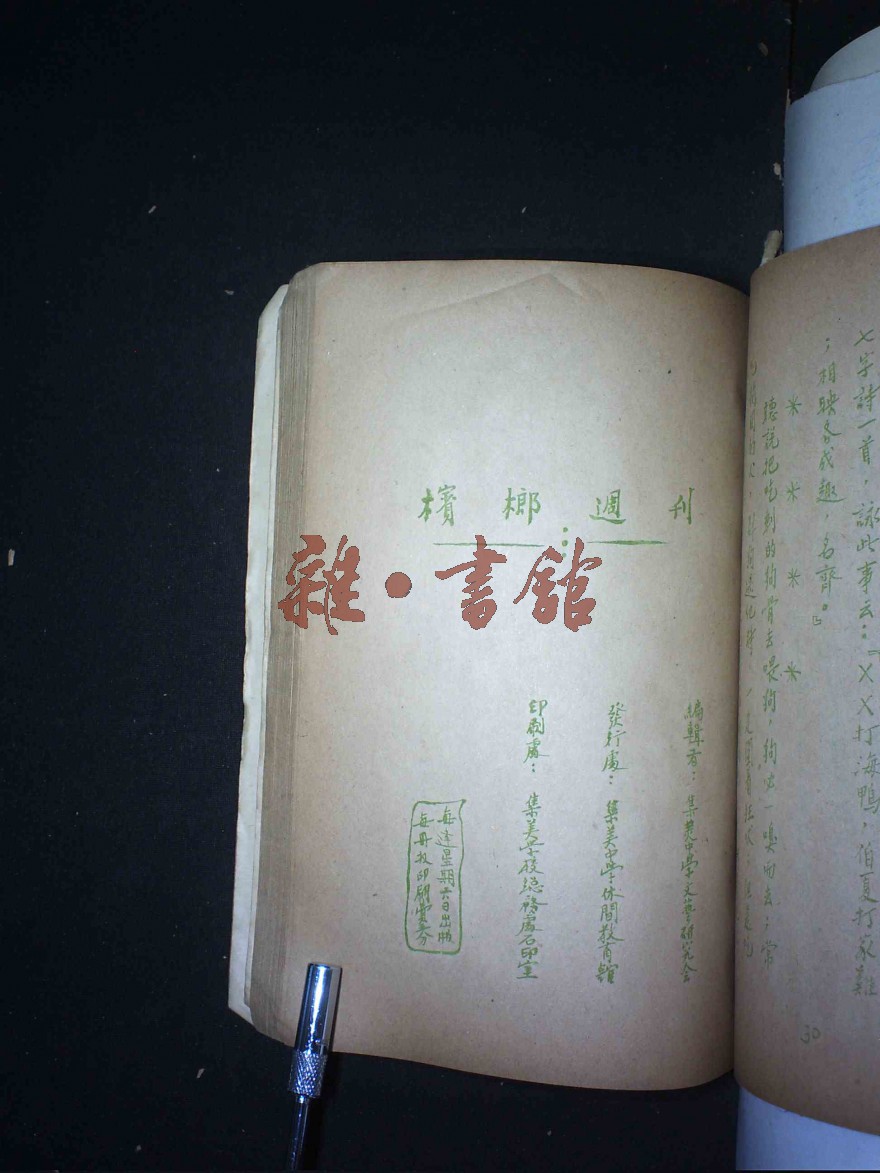 七字詩一首，詠此事云：『ㄨㄨ打海鴨，伯夏打家雞
；相映各成趣，名齊。』
＊　＊　＊　＊
聽說把吃剩的狗骨去喂狗，狗必一嗅而去；常
30
檳榔週刊
編輯者：集美中學文藝研究會
發行處：集美中學休閒教育館
印刷處：集美學校總務處石印室
每逢星期六日出版
每冊收印刷費壹分
雜·書館